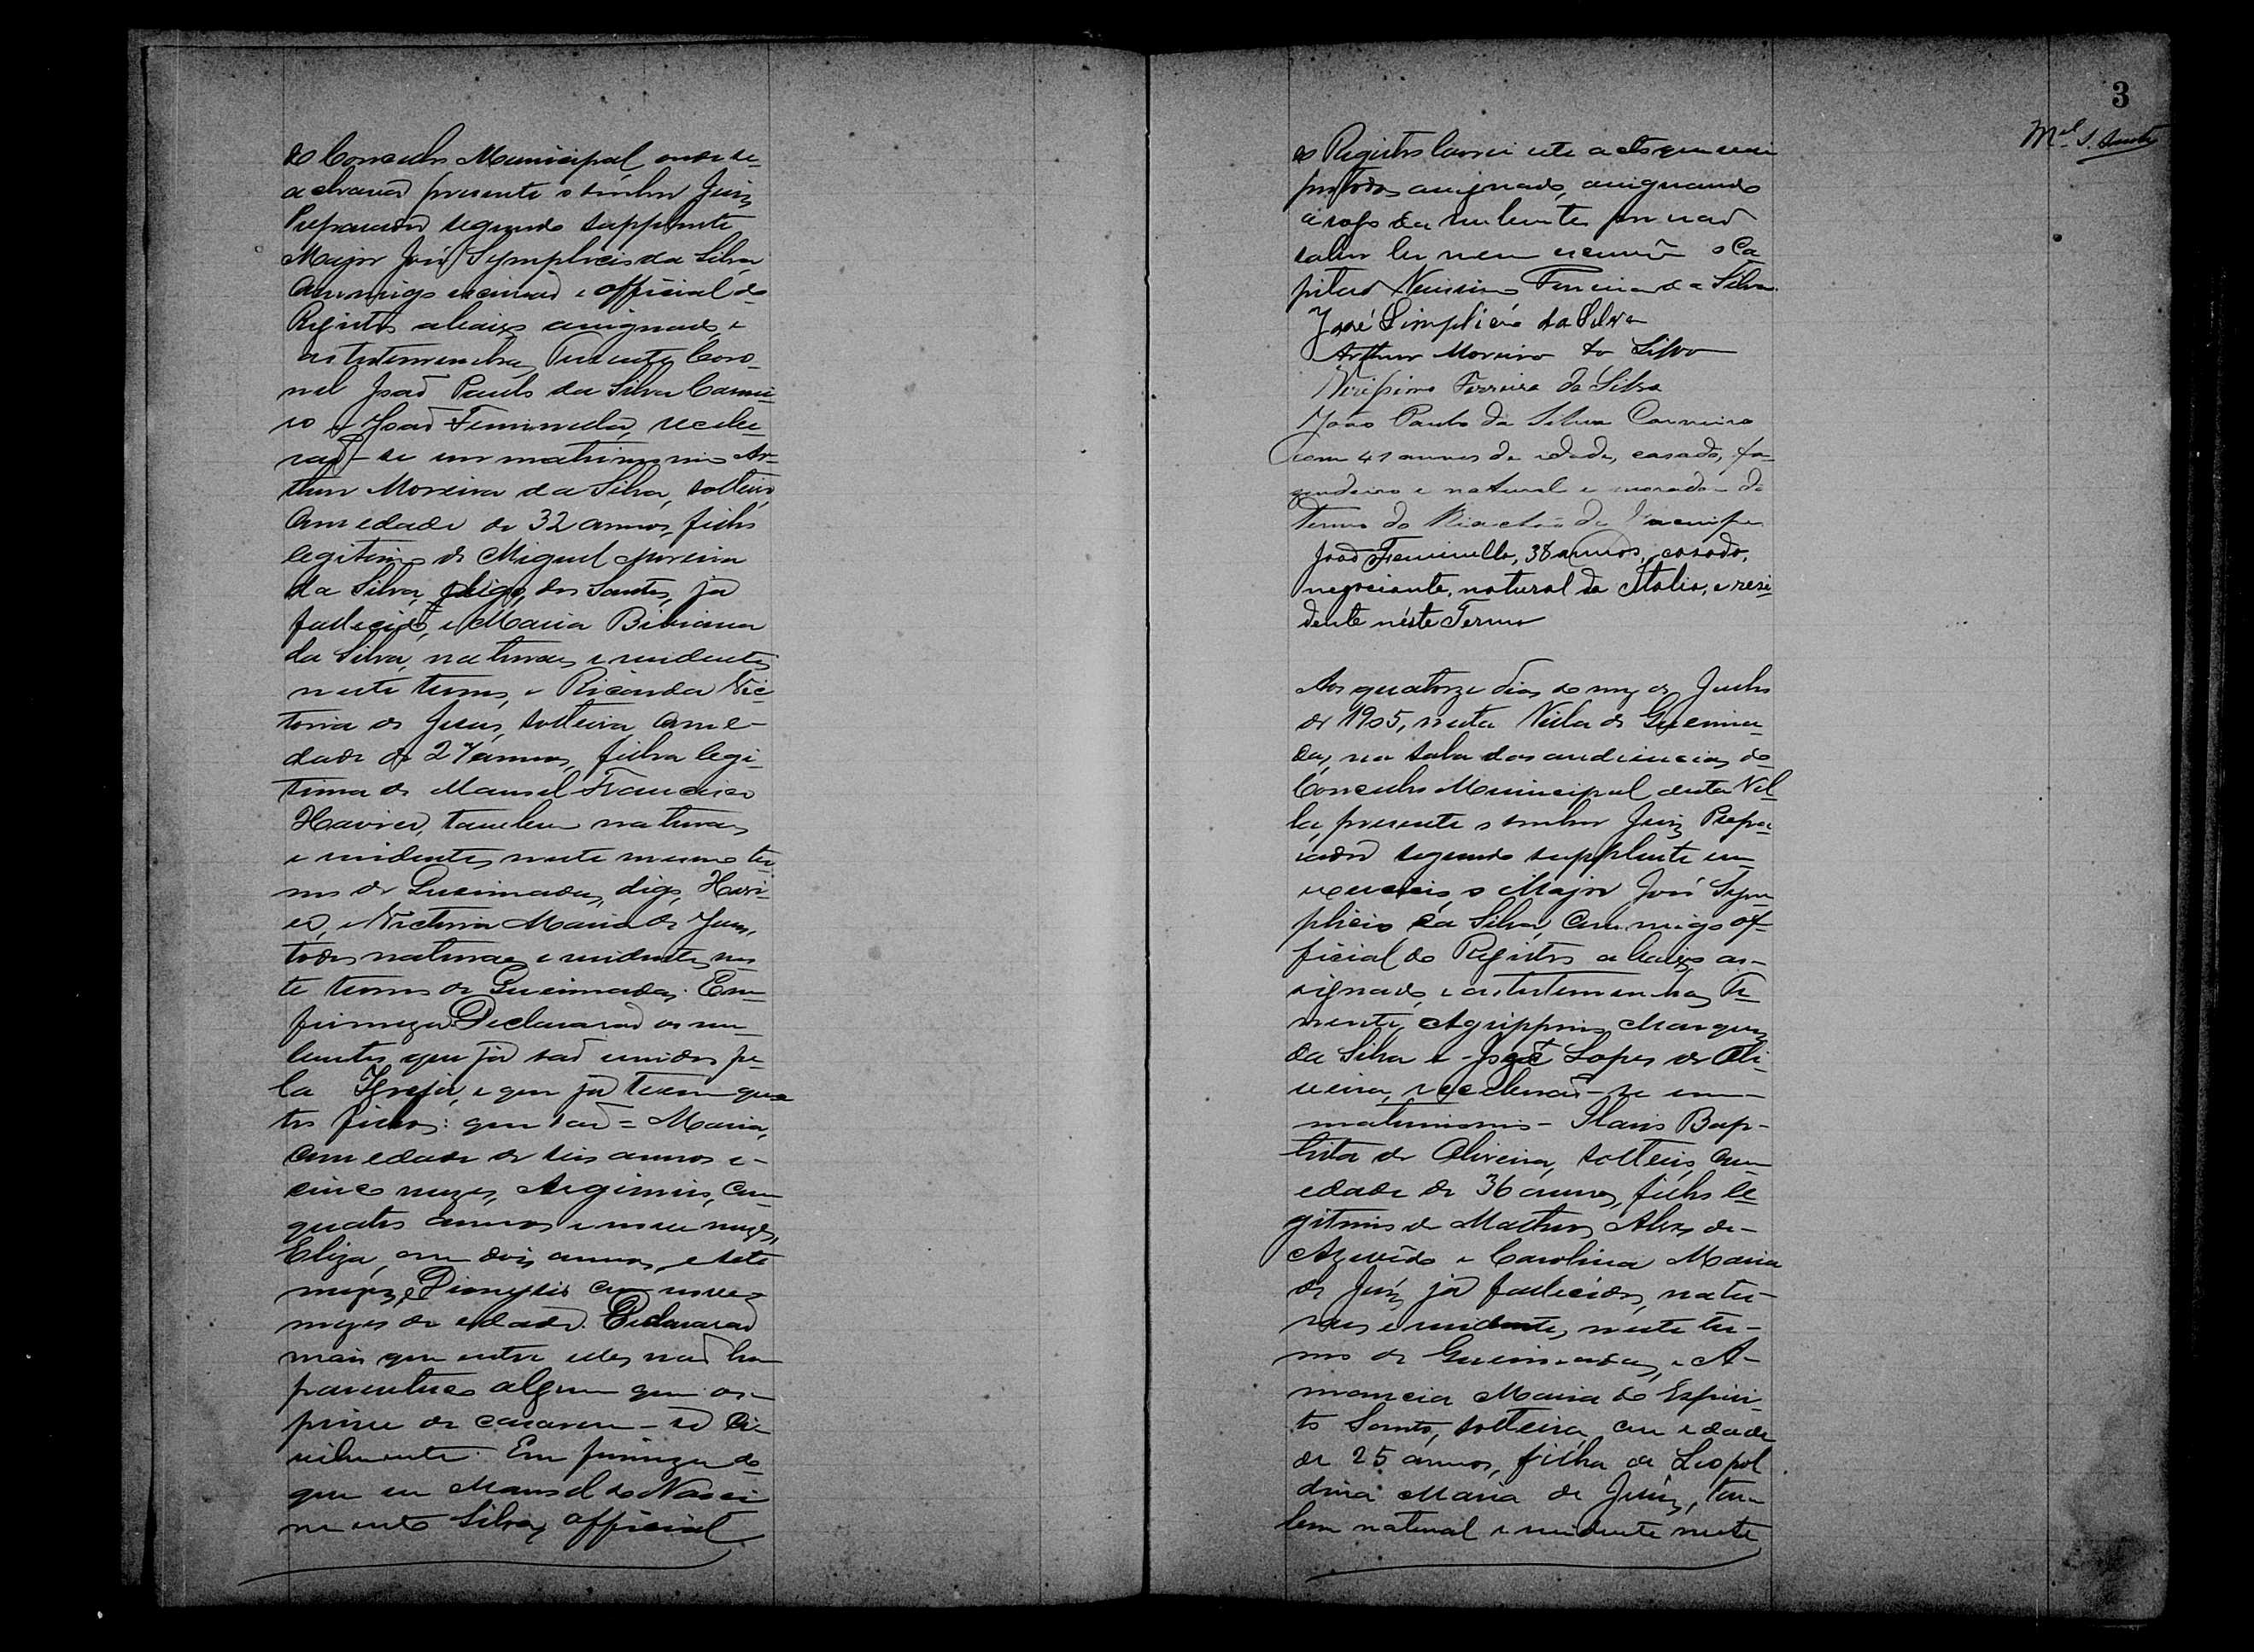 do Conselho Municipal, onde se
achavaõ presente o senhor Juiz
Preparador segundo supplente
Major José Symplicio da Silva,
commigo escrivaõ e official do
Registro abaixo assignado, e
as testemunhas, Tenente Coro-
nel Joaõ Paulo da Silva Carnei-
ro e Joaõ Feminella, recebe-
raõ-se em matrimonio Ar-
thur Moreira da Silva, solteiro,
com edade de 32 annos, filho
legitimo de Miguel Moreira
da Silva, digo, dos Santos, ja
fallecido, e Maria Bibiana
da Silva, naturaes e residentes
neste termo, e Ricarda Vic-
toria de Jesus, solteira, com e-
dade de 27 annos, filha legi-
tima de Manoel Francisco
Xavier, tambem naturaes
e residentes neste mesmo ter-
mo de Queimadas, digo, Xavi-
er, e Victoria Maria de Jesus,
todos naturaes e residentes nes-
te termo de Queimadas. Em
firmeza Declararaõ os nu-
bentes que já saõ unidos pe-
la Igreja, e que já teem qua-
tro filhos: que saõ = Maria,
com edade de seis annos e
cinco mezes, Argimiro, com
quatro annos e nove mezes,
Eliza, com dois annos, e sete
mezes, e Dionysio com nove
mezes de edade. Declararaõ
mais que entre elles naõ ha
parentesco algum que os
prive de casarem-se ci-
vilmente. Em firmeza do
que eu Manoel do Nasci-
mento Silva, official
3
Mel S. Santos
do Registro lavrei este acto que vai
por todos assignado, assignando
a rogo da nubente por naõ
saber ler nem escrever o Ca-
pitaõ Verissimo Ferreira da Silva.
José Simplicio da Silva
Arthur Moreira da Silva
Verissimo Ferreira da Silva
João Paulo da Silva Carneiro
com 41 annos de idade, casado, fa-
zendeiro e natural e morador do
Termo do Riachão do Jacuipe
Joaõ Feminella, 38 annos, casado,
negociante, natural da Italia, e resi-
dente néste Termo
Aos quatorze dias do mez de Julho
de 1905, nesta Villa de Queima-
das, na sala das audiencias do
Conselho Municipal desta Vil-
la, presente o senhor Juiz Prepa-
rador segundo supplente em
exercicio, o Major José Sym-
plicio da Silva, commigo of-
ficial do Registro abaixo as-
signado, e as testemunhas Te-
nente Agrippino Marques
da Silva e José Lopes de Oli-
veira, receberaõ-se em
matrimonio - Ilario Bap-
tista de Oliveira, solteiro, com
edade de 36 annos, filho le-
gitimo de Matheus Alves de
Azevêdo e Carolina Maria
de Jesus, já fallecidos, natu-
raes e residentes neste ter-
mo de Queimadas, e A-
mancia Maria do Espiri-
to Santo, solteira, com edade
de 25 annos, filha de Leopol-
dina Maria de Jesus, tam-
bem natural e residente neste